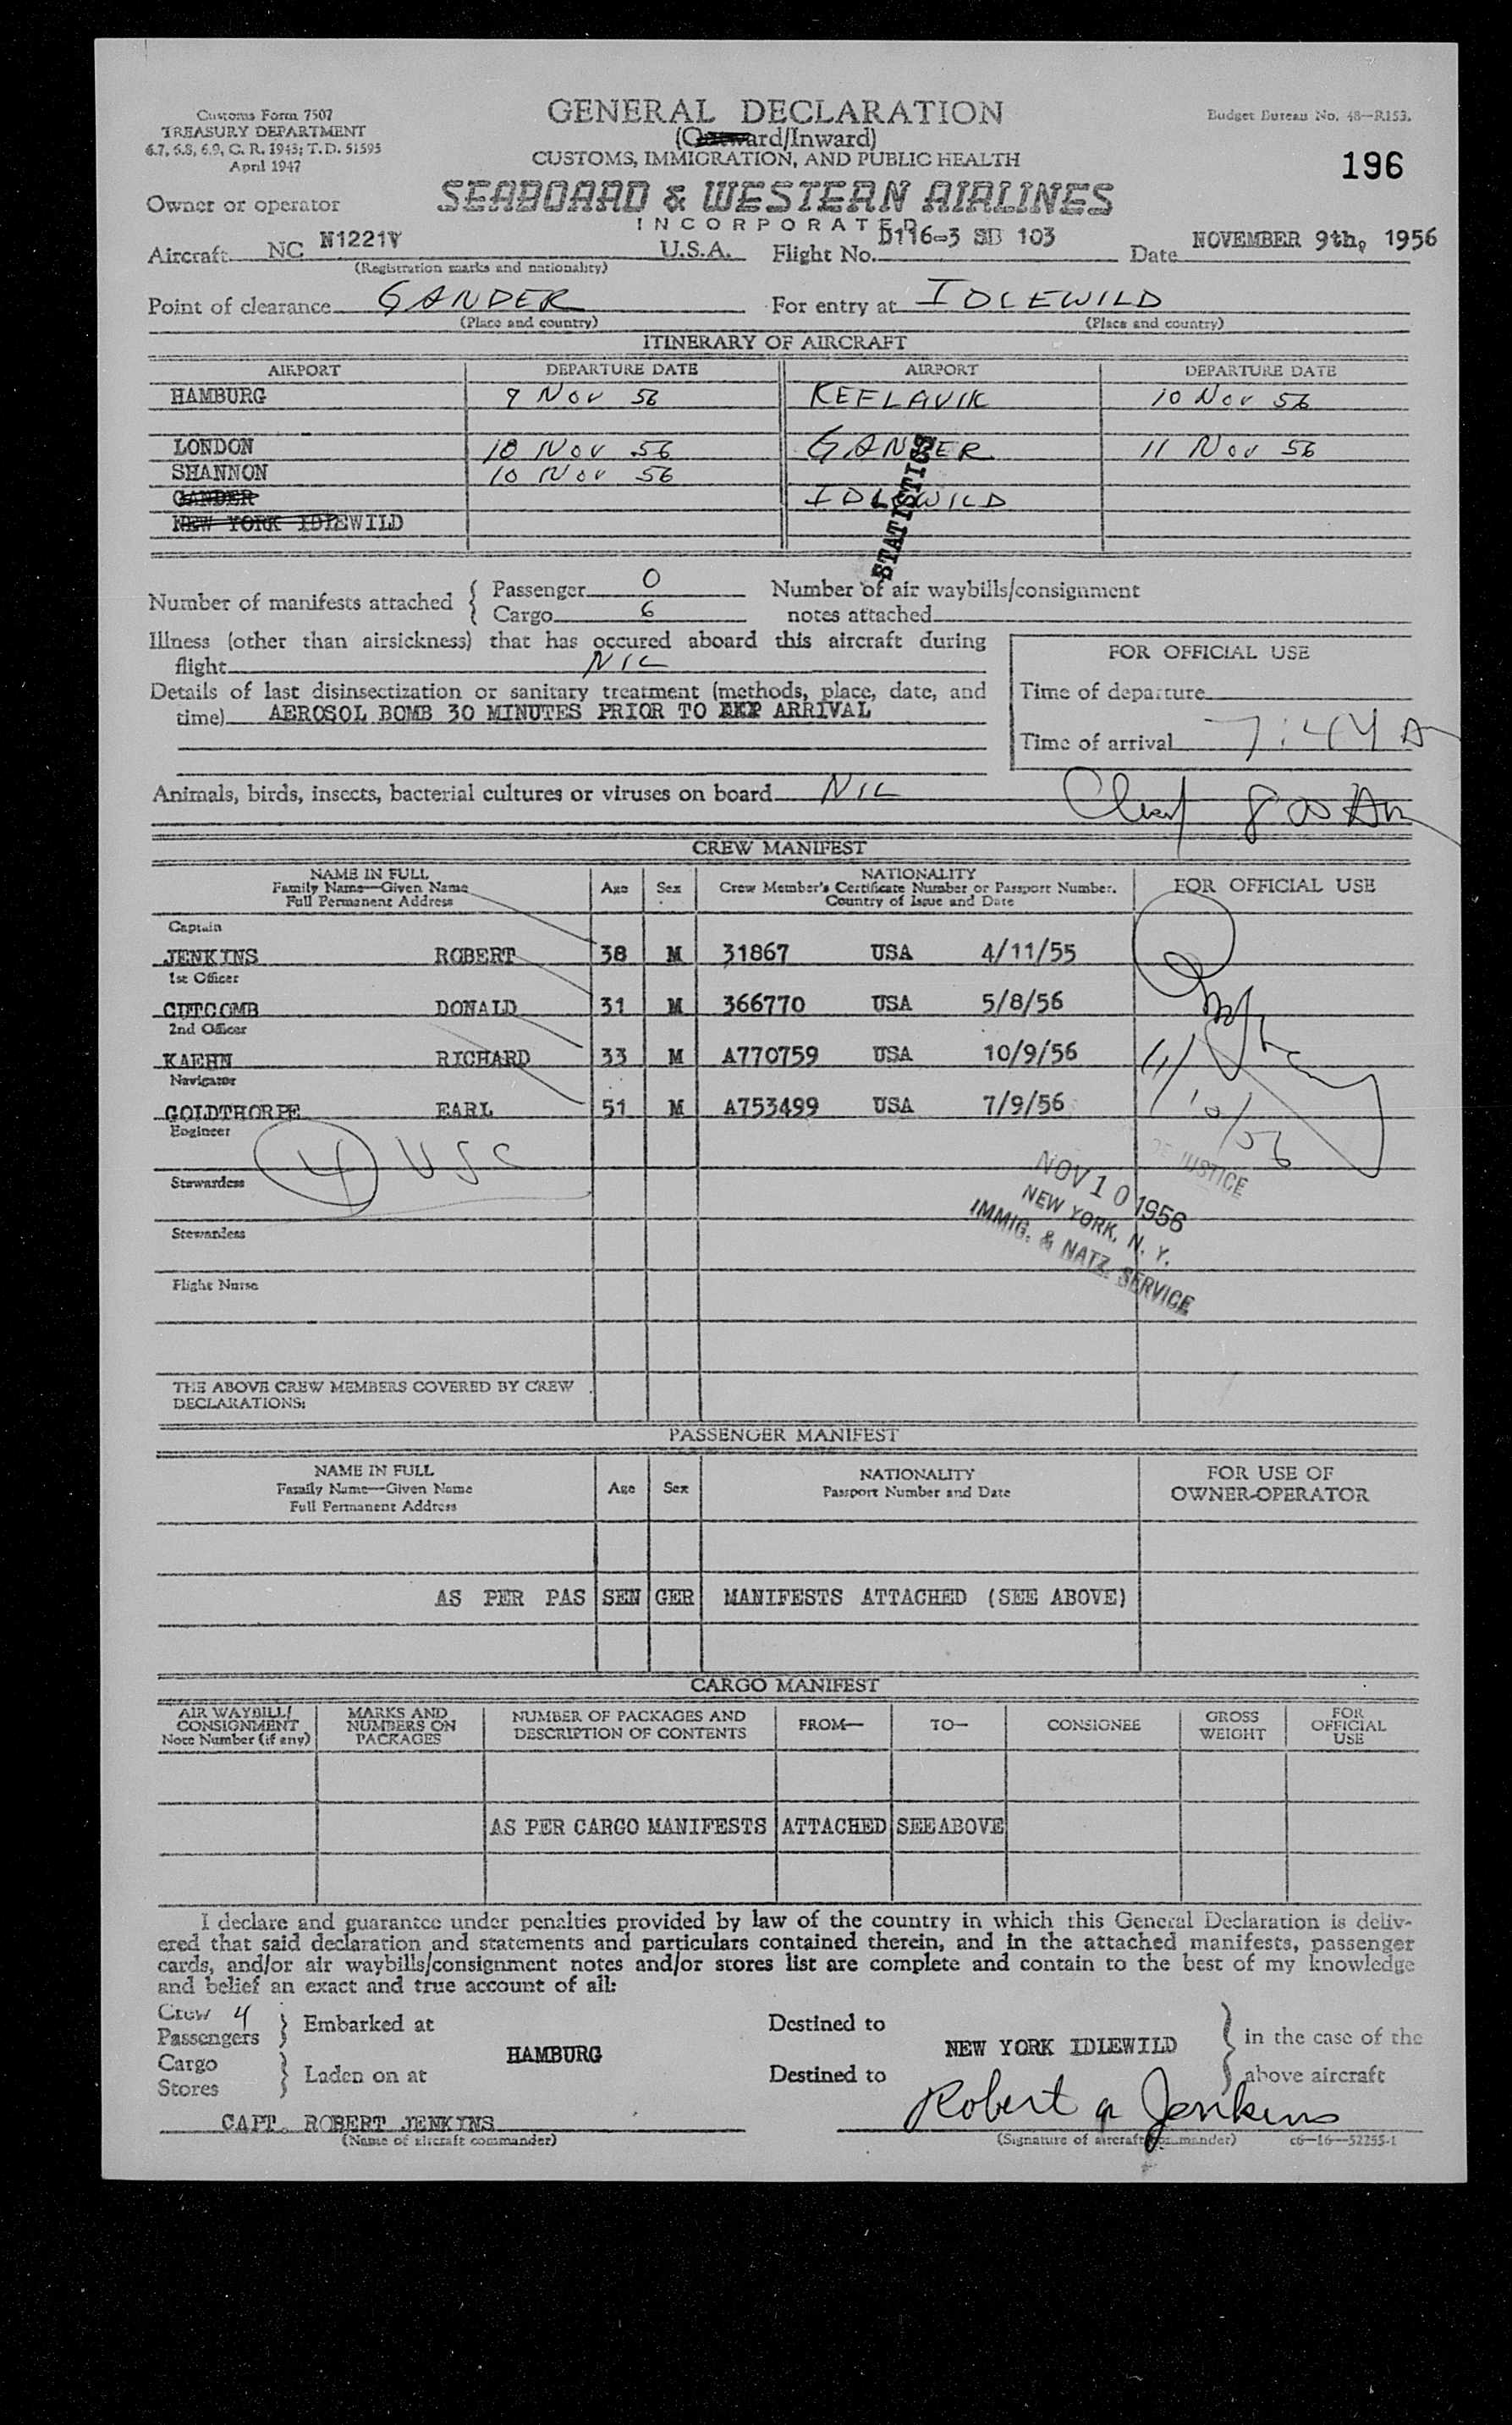 Customs Form 7507
TREASURY DEPARTMENT
6.7, 6.8, 6.9, C. R. 1943; T. D. 51595
April 1947
GENERAL DECLARATION
(Outward/Inward)
CUSTOMS, IMMIGRATION, AND PUBLIC HEALTH
Budget Bureau No. 48—R153.
196
SEABOARD & WESTERN AIRLINES
INCORPORATED
Owner or operator
Aircraft NC N1221V U.S.A. Flight No. D116-3 SD 103 Date NOVEMBER 9th, 1956
(Registration marks and nationality)
Point of clearance GANDER For entry at IDLEWILD
(Place and country) (Place and country)
ITINERARY OF AIRCRAFT
AIRPORT DEPARTURE DATE AIRPORT DEPARTURE DATE
HAMBURG 9 Nov 56 KEFLAVIK 10 Nov 56
LONDON 10 Nov 56 GANDER 11 Nov 56
SHANNON 10 Nov 56
GANDER IDLEWILD
NEW YORK IDLEWILD
STATISTICS
Number of manifests attached { Passenger 0 Number of air waybills/consignment
Cargo 6 notes attached
Illness (other than airsickness) that has occured aboard this aircraft during
flight NIL
FOR OFFICIAL USE
Details of last disinsectization or sanitary treatment (methods, place, date, and
time) AEROSOL BOMB 30 MINUTES PRIOR TO ARRIVAL
Time of departure
Time of arrival 7:44 A
Animals, birds, insects, bacterial cultures or viruses on board NIL
8 00 Am
CREW MANIFEST
NAME IN FULL
Family Name—Given Name
Full Permanent Address
Age Sex
NATIONALITY
Crew Member's Certificate Number or Passport Number.
Country of Issue and Date
FOR OFFICIAL USE
Captain
JENKINS ROBERT 38 M 31867 USA 4/11/55
1st Officer
CUTCOMB DONALD 31 M 366770 USA 5/8/56
2nd Officer
KAEHN RICHARD 33 M A770759 USA 10/9/56
Navigator
GOLDTHORPE EARL 51 M A753499 USA 7/9/56
11/10/56
Engineer
4 USC
Stewardess
Stewardess
Flight Nurse
DE JUSTICE
NOV 10 1956
NEW YORK, N. Y.
IMMIG. & NATZ. SERVICE
THE ABOVE CREW MEMBERS COVERED BY CREW
DECLARATIONS:
PASSENGER MANIFEST
NAME IN FULL
Family Name—Given Name
Full Permanent Address
Age Sex
NATIONALITY
Passport Number and Date
FOR USE OF
OWNER-OPERATOR
AS PER PAS SEN GER MANIFESTS ATTACHED (SEE ABOVE)
CARGO MANIFEST
AIR WAYBILL/
CONSIGNMENT
Note Number (if any)
MARKS AND
NUMBERS ON
PACKAGES
NUMBER OF PACKAGES AND
DESCRIPTION OF CONTENTS
FROM—
TO—
CONSIGNEE
GROSS
WEIGHT
FOR
OFFICIAL
USE
AS PER CARGO MANIFESTS ATTACHED SEE ABOVE
I declare and guarantee under penalties provided by law of the country in which this General Declaration is deliv-
ered that said declaration and statements and particulars contained therein, and in the attached manifests, passenger
cards, and/or air waybills/consignment notes and/or stores list are complete and contain to the best of my knowledge
and belief an exact and true account of all:
Crew 4
Passengers } Embarked at Destined to
HAMBURG NEW YORK IDLEWILD } in the case of the
Cargo
Stores } Laden on at Destined to above aircraft
CAPT. ROBERT JENKINS
(Name of aircraft commander)
Robert A Jenkins
(Signature of aircraft commander) c6—16—52255-1